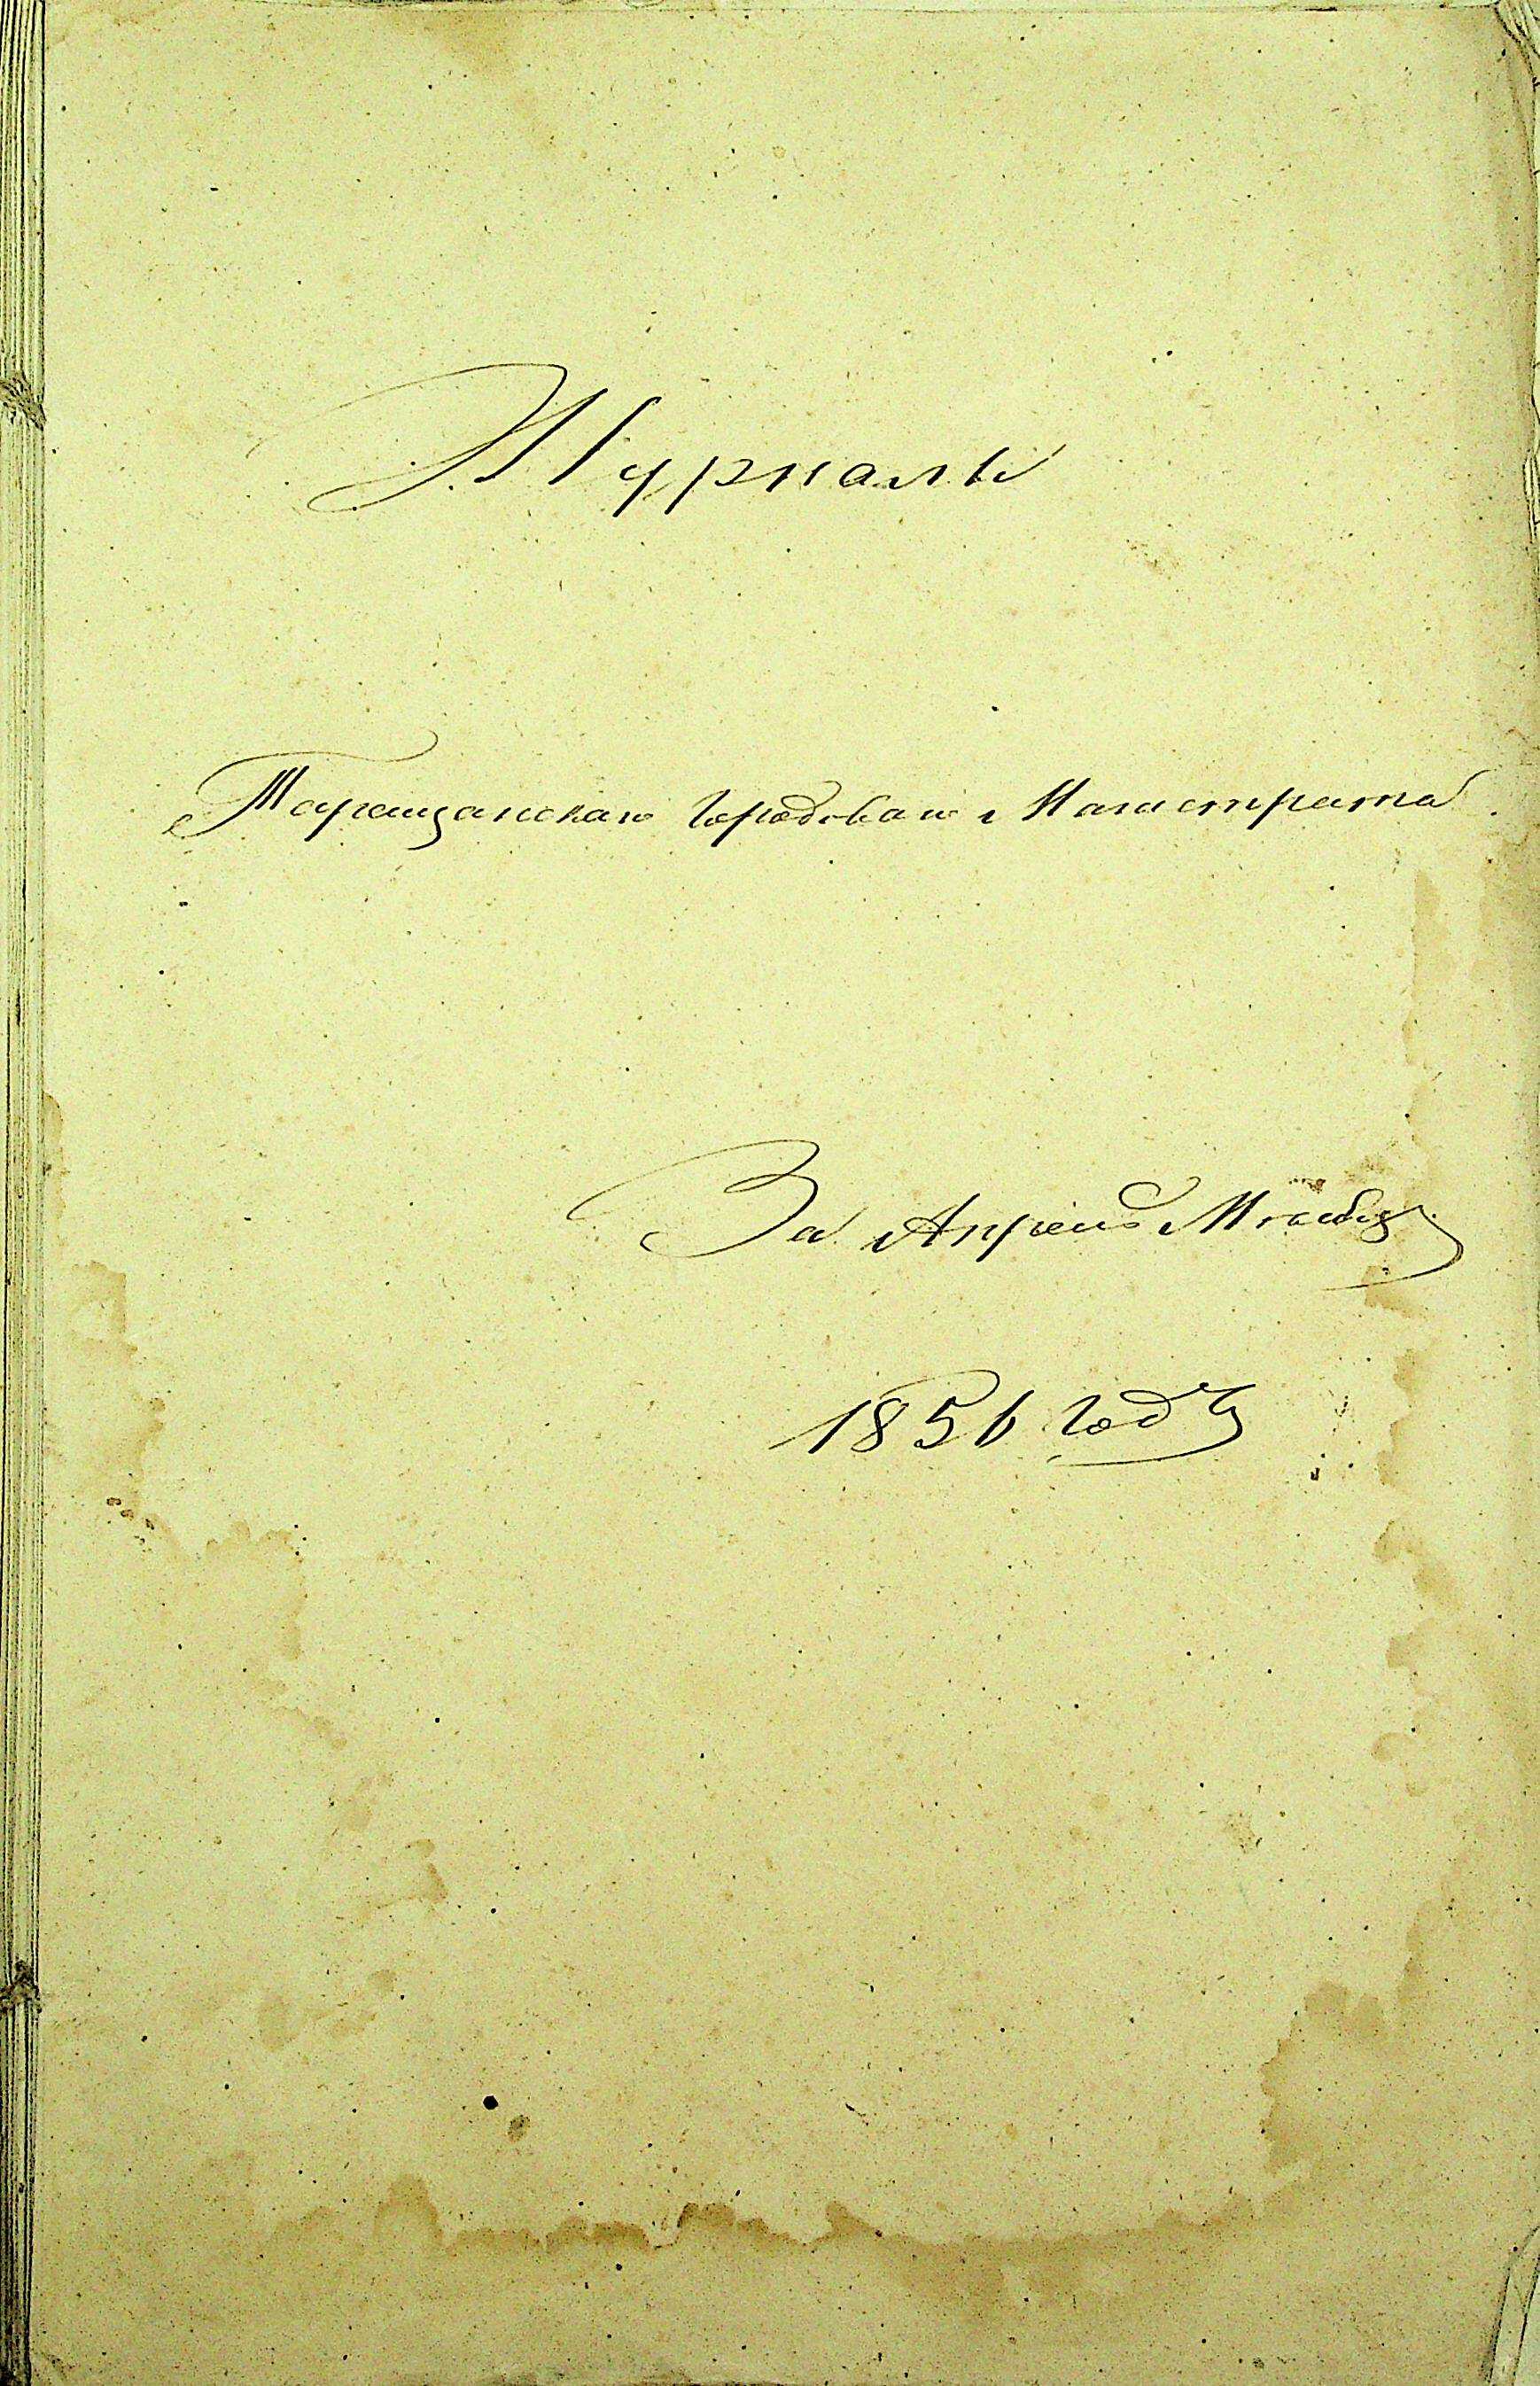 Журналы
Таращанского Городового Магистрата
За Апрель Месяцъ
1856 Году